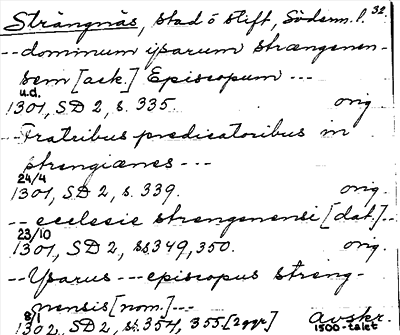 Strängnäs, stad o stift, Söderm. l. 32.
-- dominum ysarum strængenen-
sem [ack.] Episcopum ---
u.d.
1301, SD 2, s. 335. orig.
-- Fratribus predicatoribus in
strengiænes ---
24/4
1301, SD 2, s. 339. orig.
-- ecclesie strengenensi [dat.] --
23/10
1301, SD 2, ss 349, 350. orig.
-- Ysarus --- episcopus streng-
nensis [nom.] ---
8/1 Avskr.
1302, SD 2, ss. 354, 355 [2ggr] 1500-talet